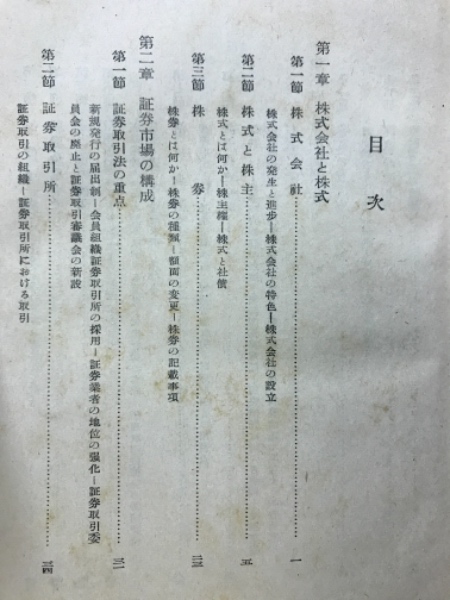 目次
第一章 株式会社と株式
第一節 株式会社……一
株式会社の発生と進歩―株式会社の特色―株式会社の設立
第二節 株式と株主……五
株式とは何か―株主権―株式と社債
第三節 株券……
株券とは何か―株券の種類―額面の変更―株券の記載事項
第二章 証券市場の構成
第一節 証券取引法の重点……
新規発行の届出制―会員組織証券取引所の採用―証券業者の地位の強化―証券取引委
員会の廃止と証券取引審議会の新設
第二節 証券取引所……
証券取引の組織―証券取引所における取引